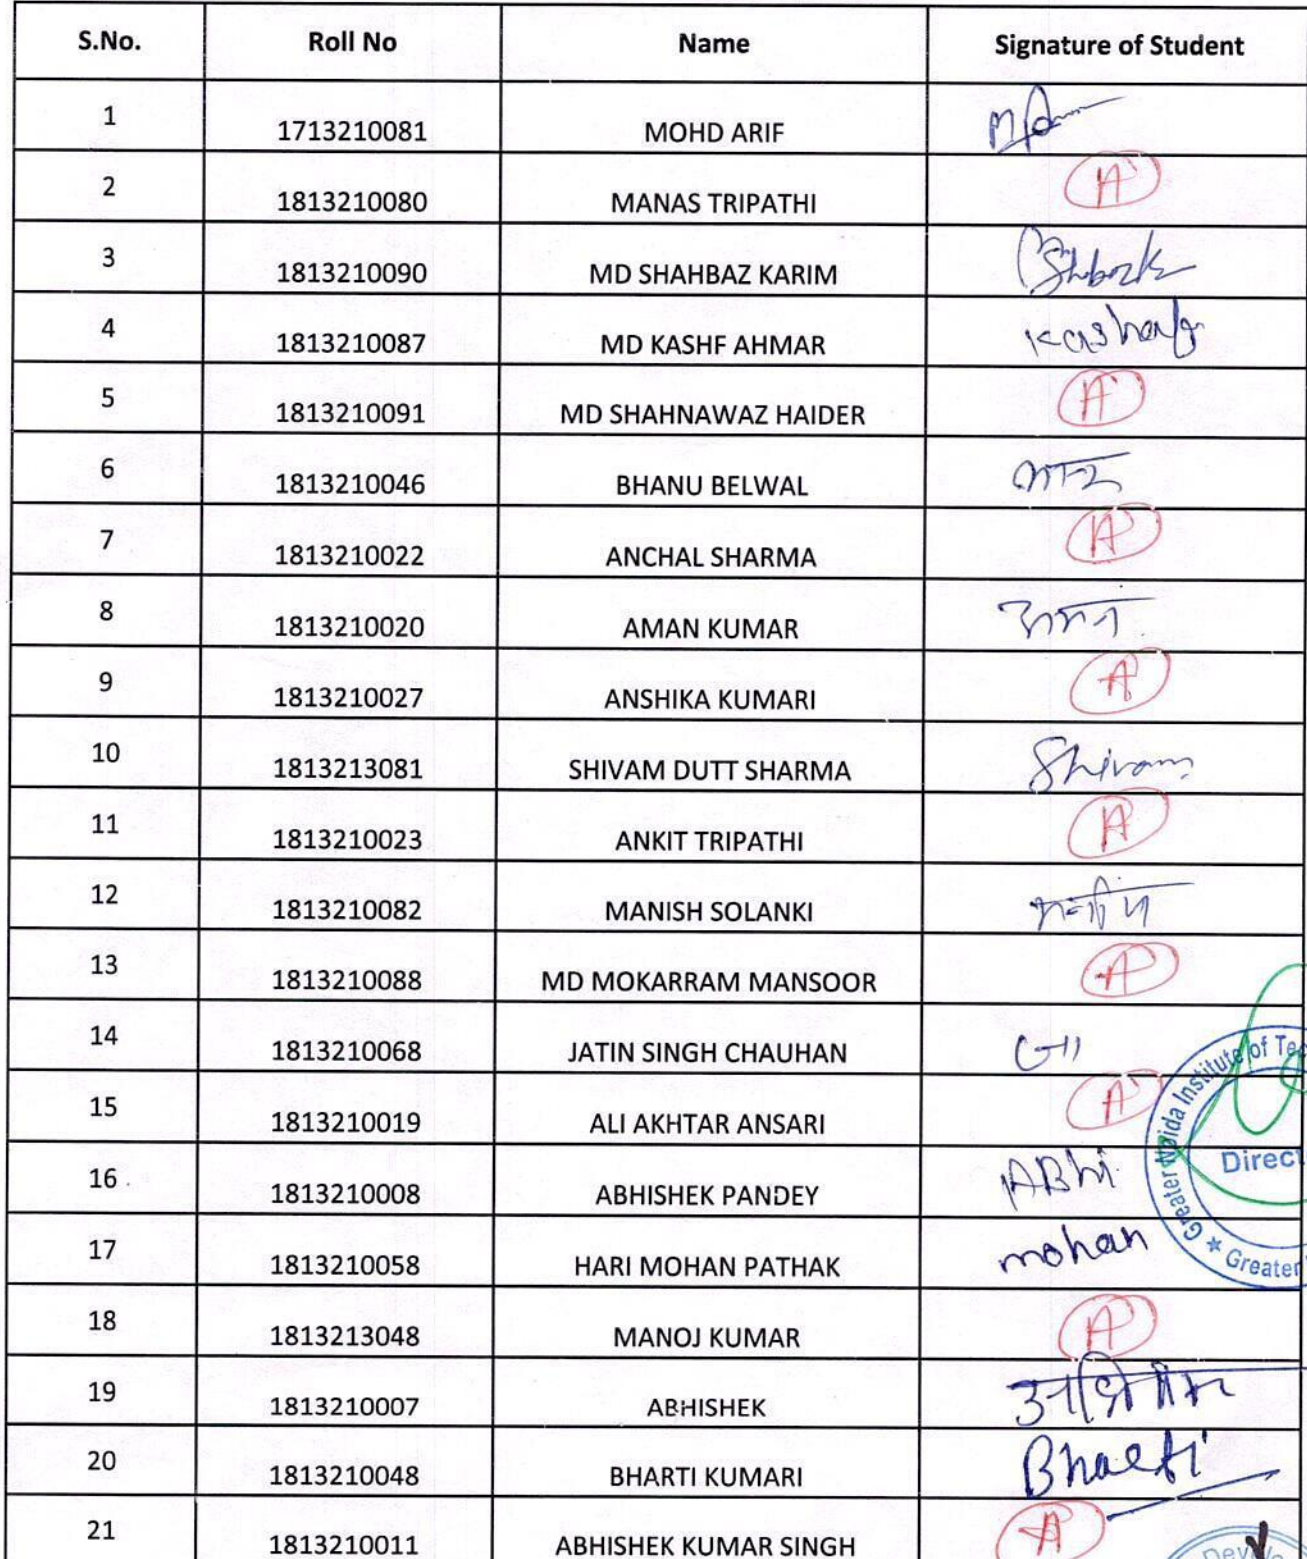 S.No. Roll No Name Signature of Student
1 1713210081 MOHD ARIF
2 1813210080 MANAS TRIPATHI A
3 1813210090 MD SHAHBAZ KARIM
4 1813210087 MD KASHF AHMAR
5 1813210091 MD SHAHNAWAZ HAIDER A
6 1813210046 BHANU BELWAL
7 1813210022 ANCHAL SHARMA A
8 1813210020 AMAN KUMAR अमन
9 1813210027 ANSHIKA KUMARI A
10 1813213081 SHIVAM DUTT SHARMA Shivam
11 1813210023 ANKIT TRIPATHI A
12 1813210082 MANISH SOLANKI
13 1813210088 MD MOKARRAM MANSOOR A
14 1813210068 JATIN SINGH CHAUHAN
15 1813210019 ALI AKHTAR ANSARI A
16 1813210008 ABHISHEK PANDEY ABhi
17 1813210058 HARI MOHAN PATHAK mohan
18 1813213048 MANOJ KUMAR A
19 1813210007 ABHISHEK
20 1813210048 BHARTI KUMARI Bharti
21 1813210011 ABHISHEK KUMAR SINGH A
Greater Noida Institute of Tec
Direct
★ Greater